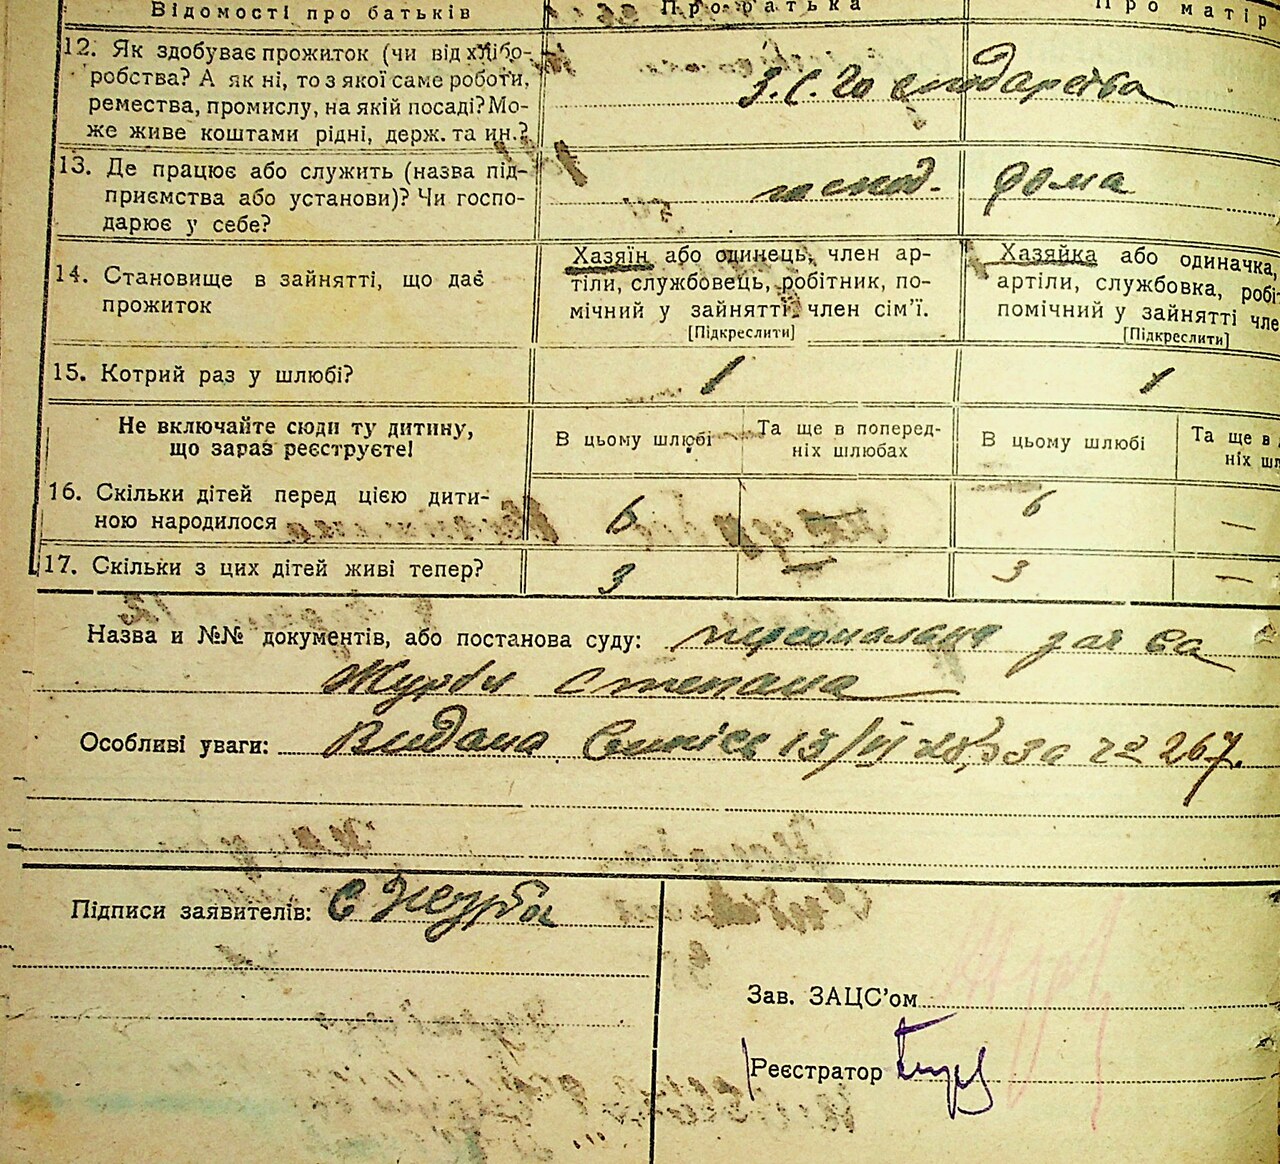 Відомості про батьків
Про батька
Про матір
12. Як здобуває прожиток (чи від хлібо-
робства? А як ні, то з якої саме роботи,
ремества, промислу, на якій посаді? Мо-
же живе коштами рідні, держ. та ин.?
З. С. Господарства
13. Де працює або служить (назва під-
приємства або установи)? Чи госпо-
дарює у себе?
господ. дома
14. Становище в зайнятті, що дає
прожиток
Хазяїн або одинець, член ар-
тілі, службовець, робітник, по-
мічний у зайнятті член сім'ї.
[Підкреслити]
Хазяйка або одиначка,
артіли, службовка, робі
помічний у зайнятті чле
[Підкреслити]
15. Котрий раз у шлюбі?
1
1
Не включайте сюди ту дитину,
що зараз реєструєте!
В цьому шлюбі
Та ще в поперед-
ніх шлюбах
В цьому шлюбі
Та ще в
ніх шл
16. Скільки дітей перед цією дити-
ною народилося
6
—
6
—
17. Скільки з цих дітей живі тепер?
3
—
3
—
Назва и №№ документів, або постанова суду: персональна
Журби Степана
Особливі уваги: Видана 13/VI за № 267.
Підписи заявителів: С Журба
Зав. ЗАЦС'ом
Реєстратор